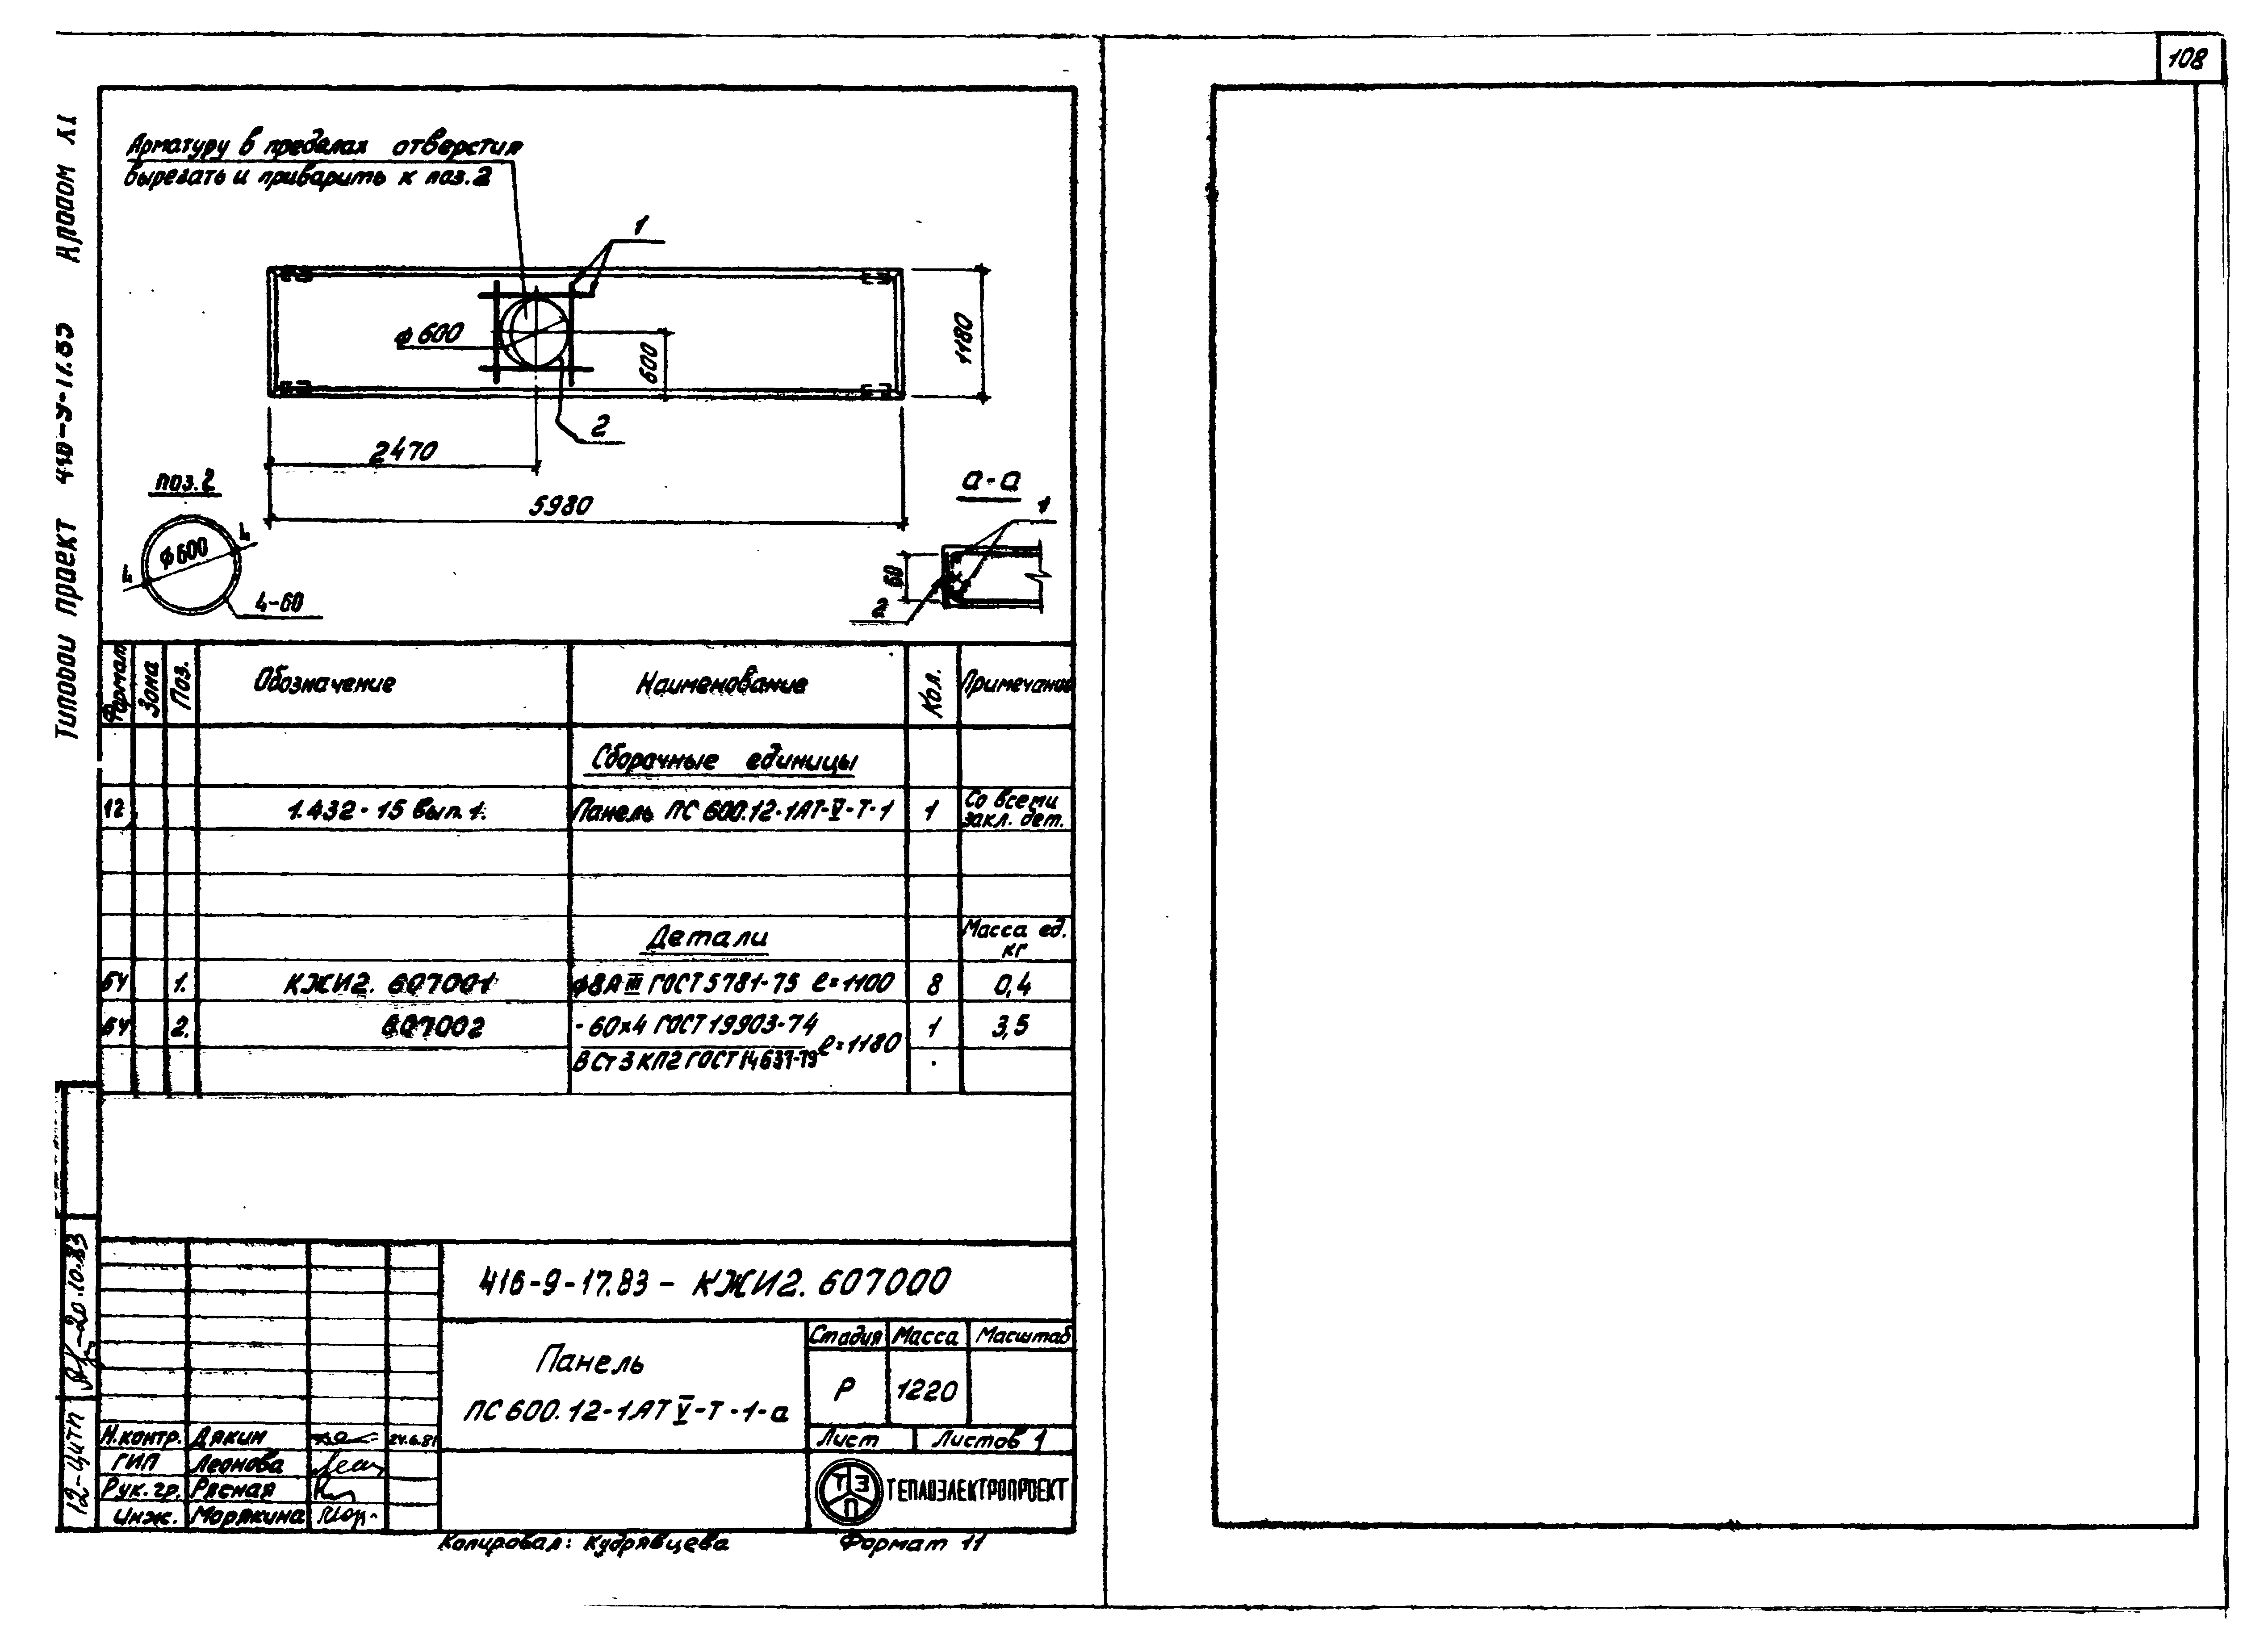 108
Типовой проект 416-9-17.83 Альбом XI
Арматуру в пределах отверстия
вырезать и приварить к поз.2
1
ф600
600
1180
2
2470
5980
поз.2
ф600
4
4
4-60
а-а
1
60
2
Формат Зона Поз. Обозначение Наименование Кол. Примечание
Сборочные единицы
12 1.432-15 вып.1. Панель ПС 600.12-1АТ-V-Т-1 1 Со всеми
закл. дет.
Детали Масса ед.
кг
БЧ 1. КЖИ2. 607001 ф8АIII ГОСТ 5781-75 ℓ=1100 8 0,4
БЧ 2. 607002 -60х4 ГОСТ 19903-74 ℓ=1180 1 3,5
В Ст 3 КП2 ГОСТ 14637-79
416-9-17.83 - КЖИ2. 607000
Панель
ПС 600.12-1АТ V-Т-1-а
Стадия Масса Масштаб
Р 1220
Лист Листов 1
Н.контр. Дякин 24.6.81
ГИП Леонова
Рук.гр. Рясная
Инж. Морякина
ТЭП
ТЕПЛОЭЛЕКТРОПРОЕКТ
12-ЦИТП 20.10.83
Копировал: Кудрявцева Формат 11